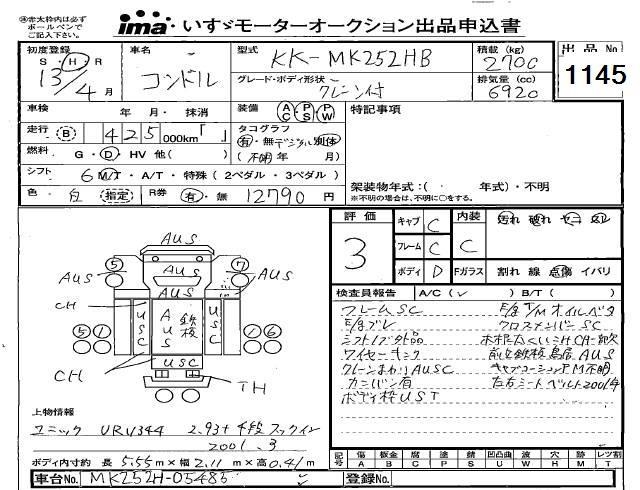 ㊟赤太枠内は必ず
ボールペンで
ご記入下さい。
ima いすゞモーターオークション出品申込書
初度登録
S・H・R
13/4月
車名
コンドル
型式
KK-MK252HB
グレード・ボディ形状
クレーン付
積載 (kg)
2700
排気量 (cc)
6920
出品 No
1145
車検 年・月・ 抹消
装備 AC PS PW
特記事項
走行 B 425 000km「 」
タコグラフ
有・無 デジタル 別体
燃料 G・D・HV 他( )
(不明 年 月)
シフト 6 M/T・A/T・特殊 (2ペダル・3ペダル)
架装物年式:( 年式)・不明
※不明の場合は、不明に○をする。
色 白 (指定) R券 有・無 12790 円
評価
3
キャブ C
フレーム C
ボディ D
内装 C
Fガラス
汚れ 破れ ヤニ スレ
割れ 線 点傷 イバリ
検査員報告 A/C(✓) B/T( )
フレームSC
E/gブレ
E/g T/M オイルベタ
クロスメンバーSC
AUS
AUS
AUS
AUS
CH
USC
AUS
鉄板
USC
USC
CH
TH
5
7
5
1
1
6
クレーンまわりAUSC
ボディ枠UST
上物情報
ユニック URV344 2.93t 4段 フックイン
2001.3
ボディ内寸約 長 5.55m×幅 2.11m×高 0.41m
記号
傷 板金 腐 塗 錆 凹凸曲 波 穴 跡 レツ割
A B C P S U W H M T
車台No. MK252H-05485
登録No.